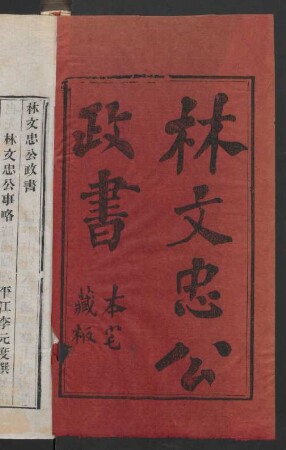 林文忠公
政書
本宅
藏板
林文忠公政書
林文忠公事略
平江李元度撰